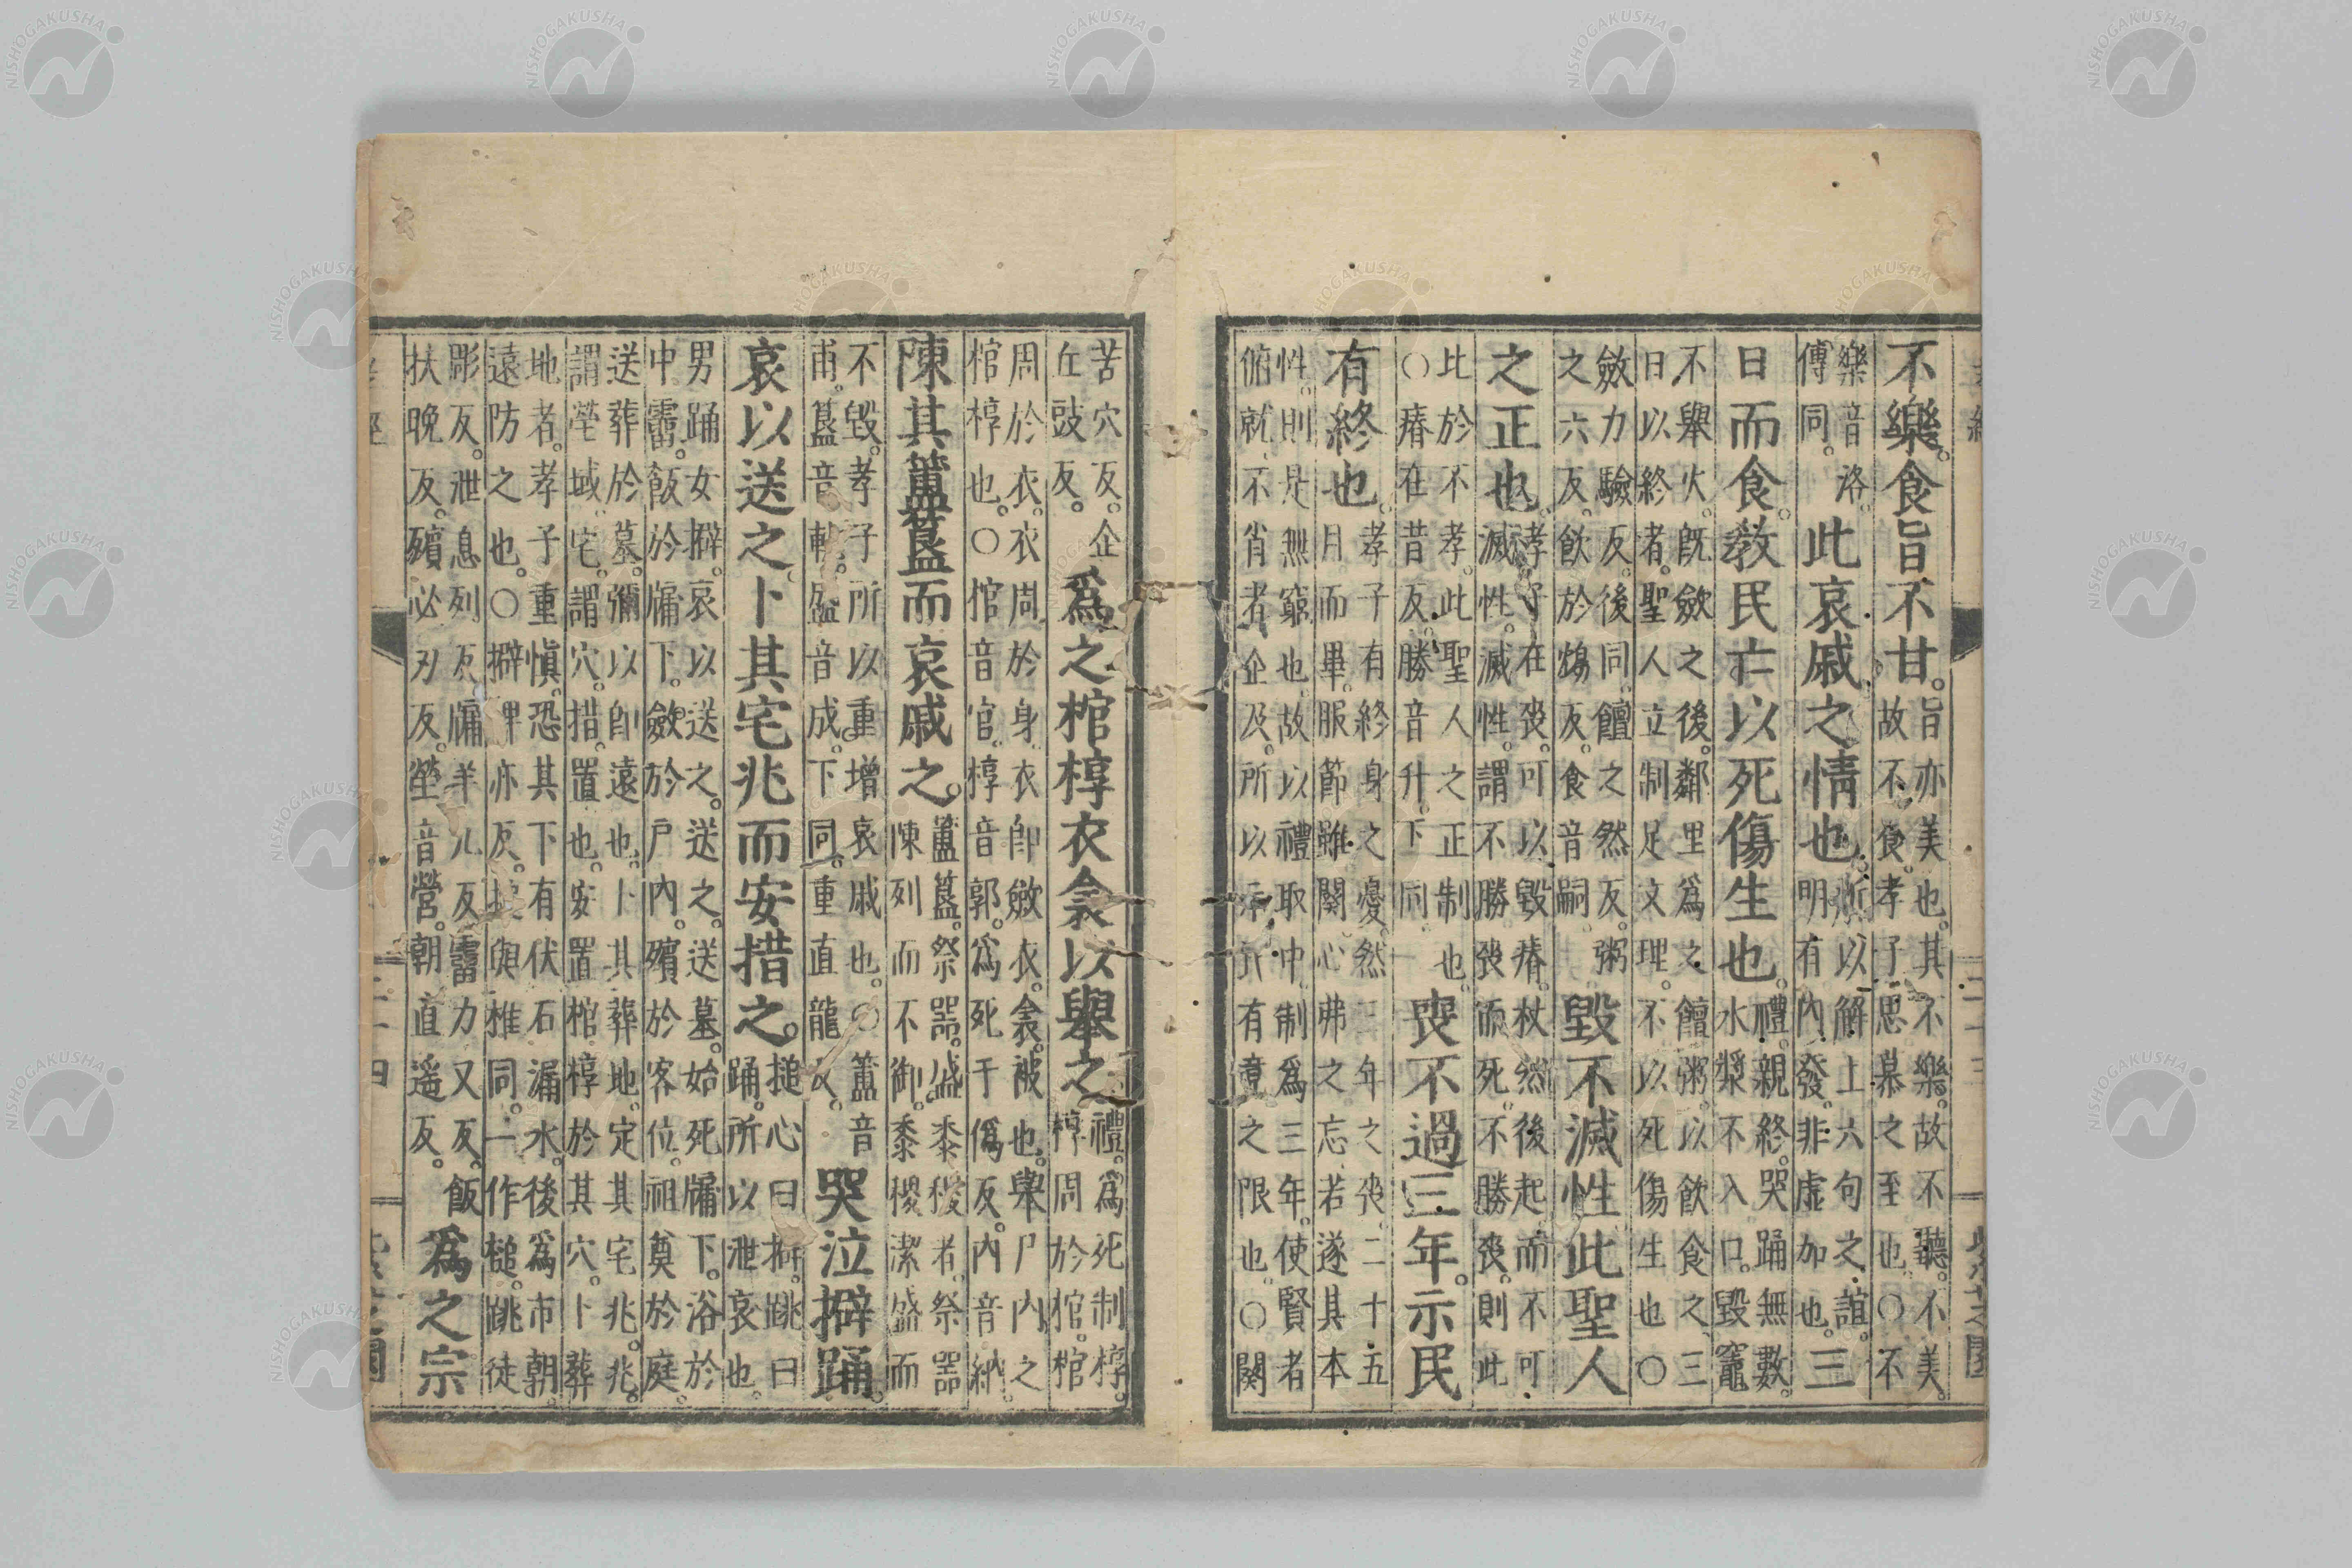 不樂食旨不甘旨亦美也其不樂故不聽不美
故不食孝子思慕之至也○不
樂音洛
傳同此哀戚之情也所以解上六句之誼
明有內發非虛加也三
日而食教民亡以死傷生也禮親終哭踊無數
水漿不入口毀竈
不舉火旣斂之後鄰里爲之饘粥以飲食之三
日以終者聖人立制足文理不以死傷生也○
斂力驗反後同饘之然反粥
之六反飲於鴆反食音嗣毀不滅性此聖人
之正也孝子在喪可以毀瘠杖然後起而不可
滅性滅性謂不勝喪而死不勝喪則此
比於不孝此聖人之正制也
○瘠在昔反勝音升下同喪不過三年示民
有終也孝子有終身之憂然三年之喪二十五
月而畢服節雖闋心弗之忘若遂其本
性則是無窮也故以禮取中制爲三年使賢者
俯就不肖者企及所以示民有竟之限也○闋
苦穴反企
丘跂反爲之棺椁衣衾以舉之禮爲死制椁
椁周於棺棺
周於衣衣周於身衣卽斂衣衾被也舉尸內之
棺椁也○棺音官椁音郭爲死于僞反內音納
陳其簠簋而哀戚之簠簋祭器盛黍稷者祭器
陳列而不御黍稷潔盛而
不毀孝子所以重增哀戚也○簠音
甫簋音軌盛音成下同重直龍反哭泣擗踊
哀以送之卜其宅兆而安措之搥心曰擗跳曰
踊所以泄哀也
男踊女擗哀以送之送之送墓始死牖下浴於
中霤飯於牖下斂於戶內殯於客位祖奠於庭
送葬於墓彌以卽遠也卜其葬地定其宅兆兆
謂塋域宅謂穴措置也安置棺椁於其穴卜葬
地者孝子重愼恐其下有伏石漏水後爲市朝
遠防之也○擗婢亦反搥與椎同一作槌跳徒
彫反泄息列反牖羊久反霤力又反飯
扶晚反殯必刃反塋音營朝直遥反爲之宗
二十四